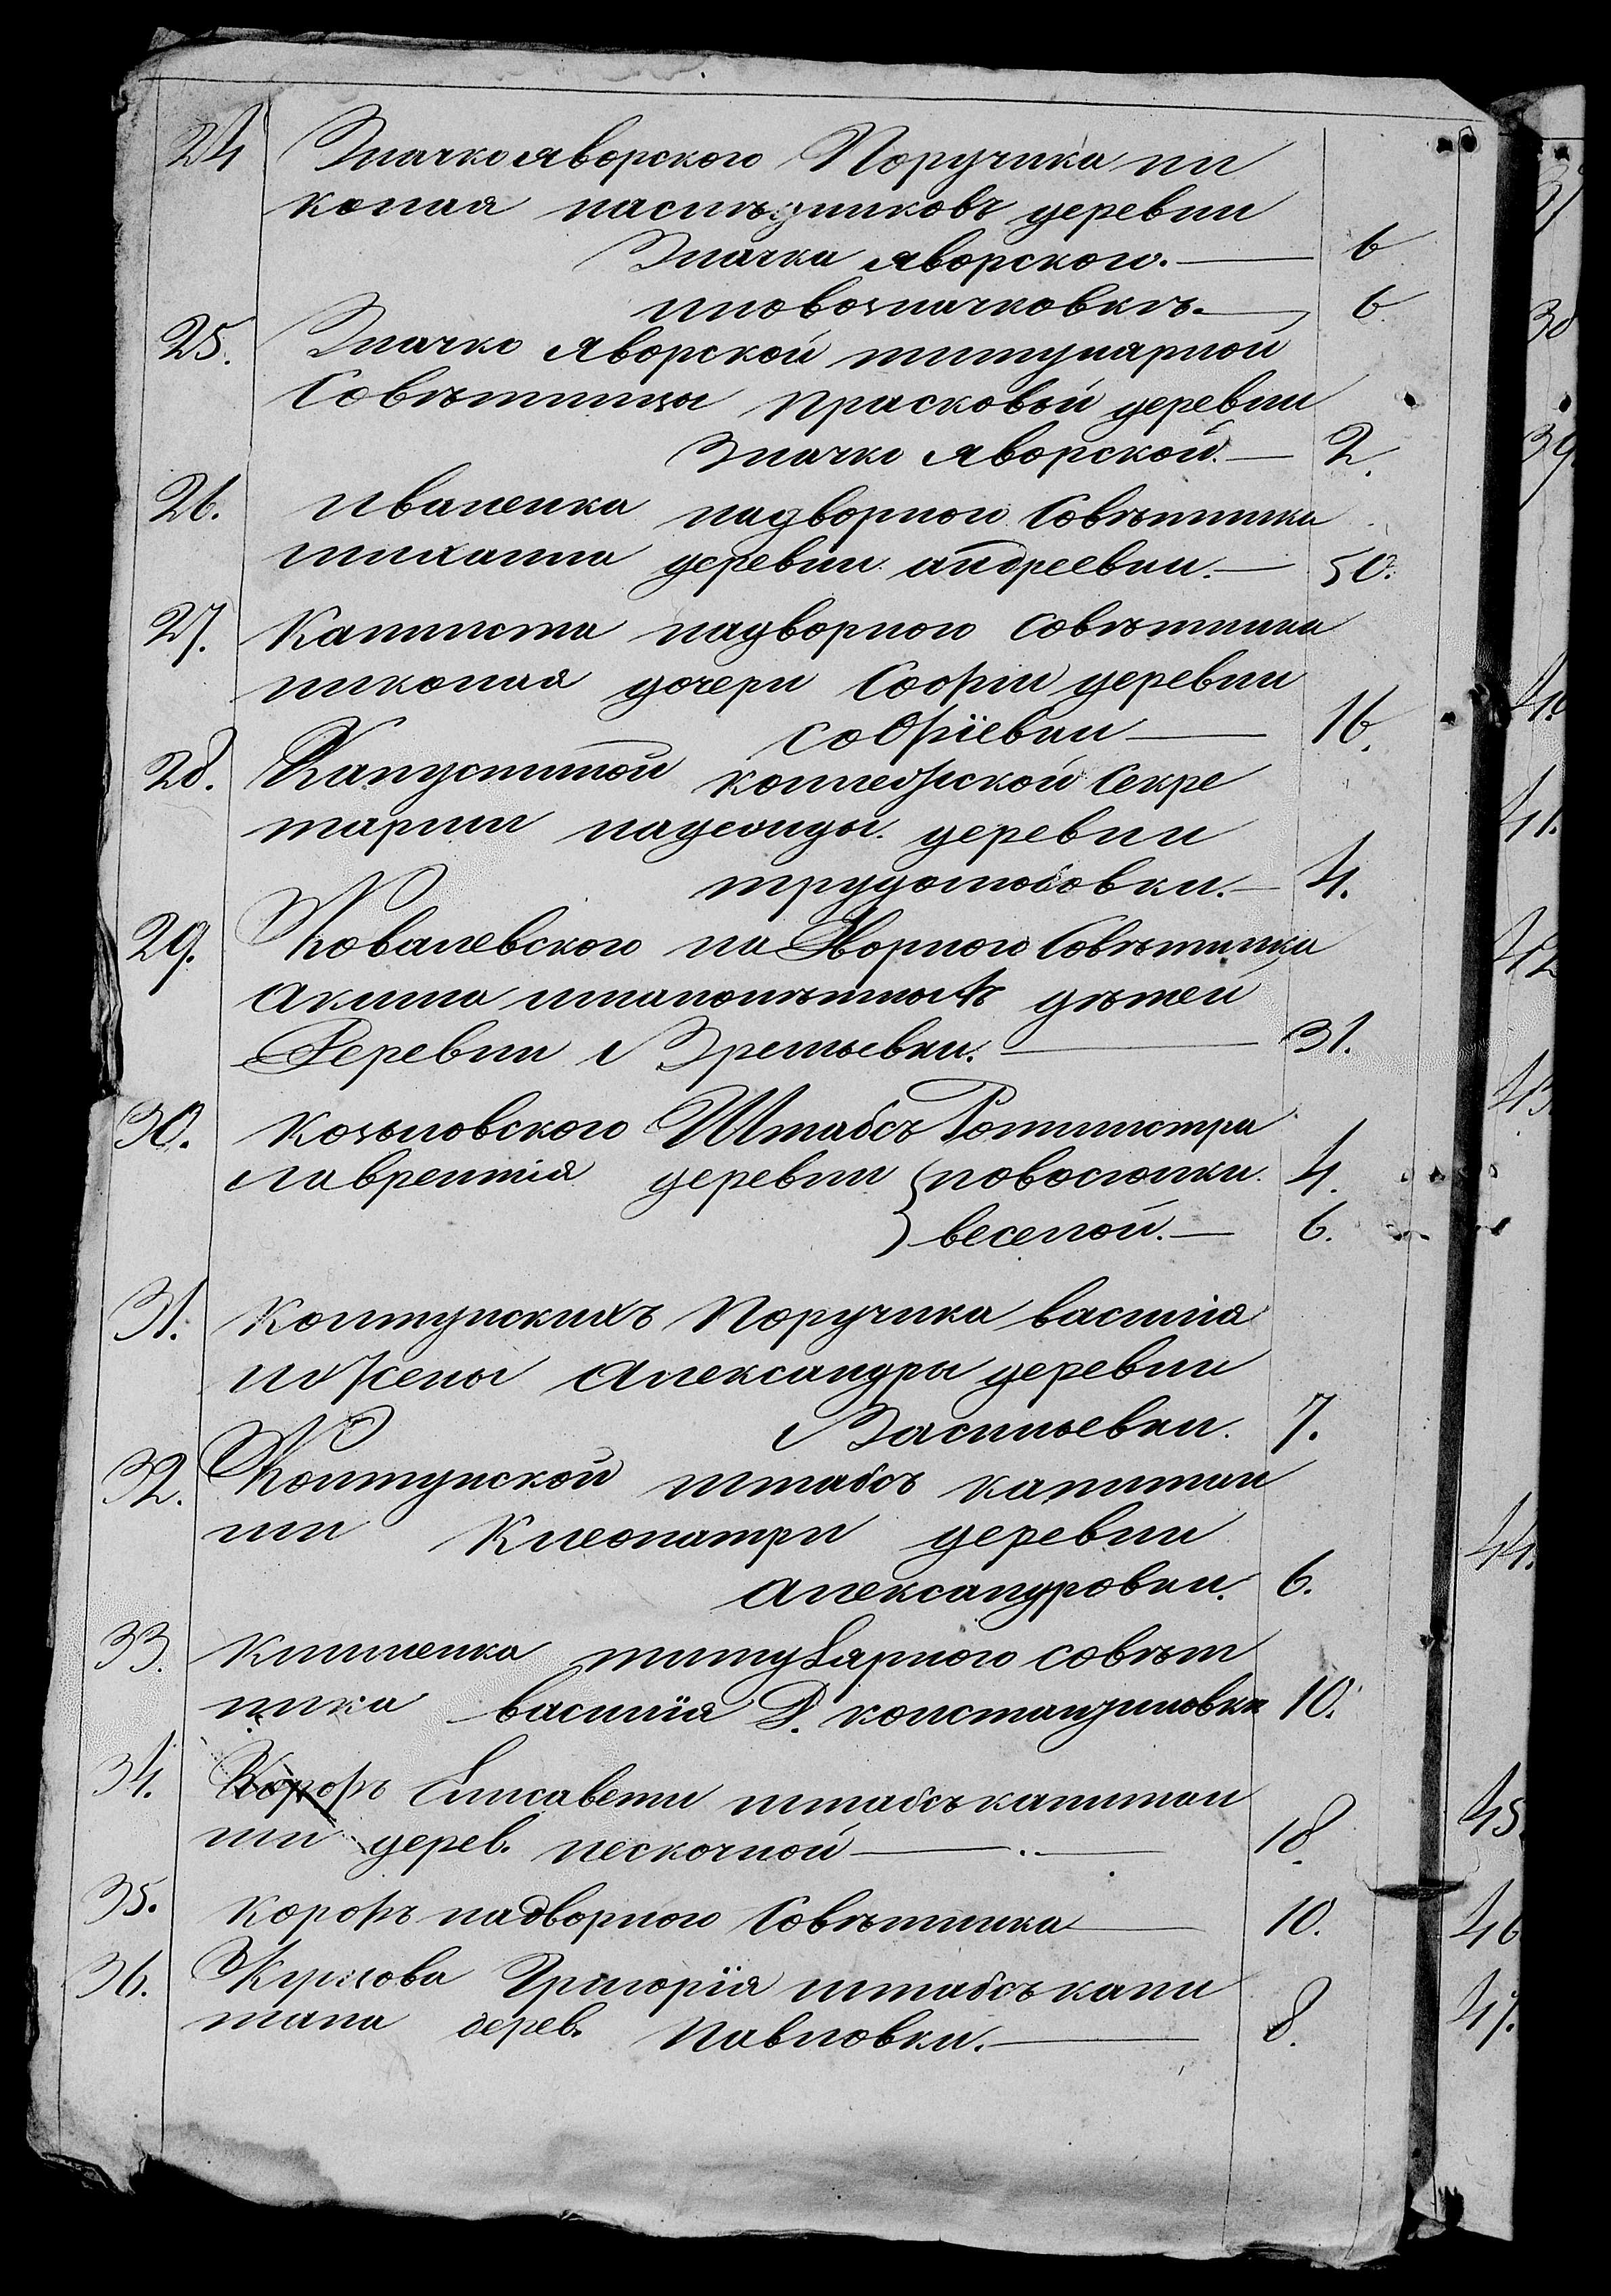 24 Значкояворского Поручика ни
колая наслѣдниковъ деревни
Значка яворского. — 6
иновозначковкѣ. — 6
25. Значко яворской титулярной
Совѣтницы прасковьи деревни
Значко яворской. — 2.
26. иваненка надворного Совѣтника
михаила деревни андреевки. — 50.
27. Капниста надворного совѣтника
николая дочери Софiи деревни
софiевки — 16.
28. Капустиной коллежской Секре
тарши надежды. деревни
трудолюбовки. — 4.
29. Ковалевского на Дворного Совѣтника
Акима малолѣтныхъ дѣтей
Деревни Времьевки. — 31.
30. козловского Штабсъ Ротмистра
лаврентiя деревни новоселки. 4.
веселой. — 6.
31. колтунскихъ Поручика василiя
и жены Александры деревни
Васильевки. 7.
32. Колтунской штабсъ капитан
ши Клеопатри деревни
Александровки. 6.
33. клименка титулярного совѣт
ника василiя Д. константиновки 10.
34. Корфъ Елисавети штабсъ капитан
ши дерев. песочной — 18.
35. корфъ надворного Совѣтника — 10.
36. Курилова Григорiя штабсъ капи
тана дерев. Павловки. — 8.
39.
41.
42
43.
44.
45.
46
47.